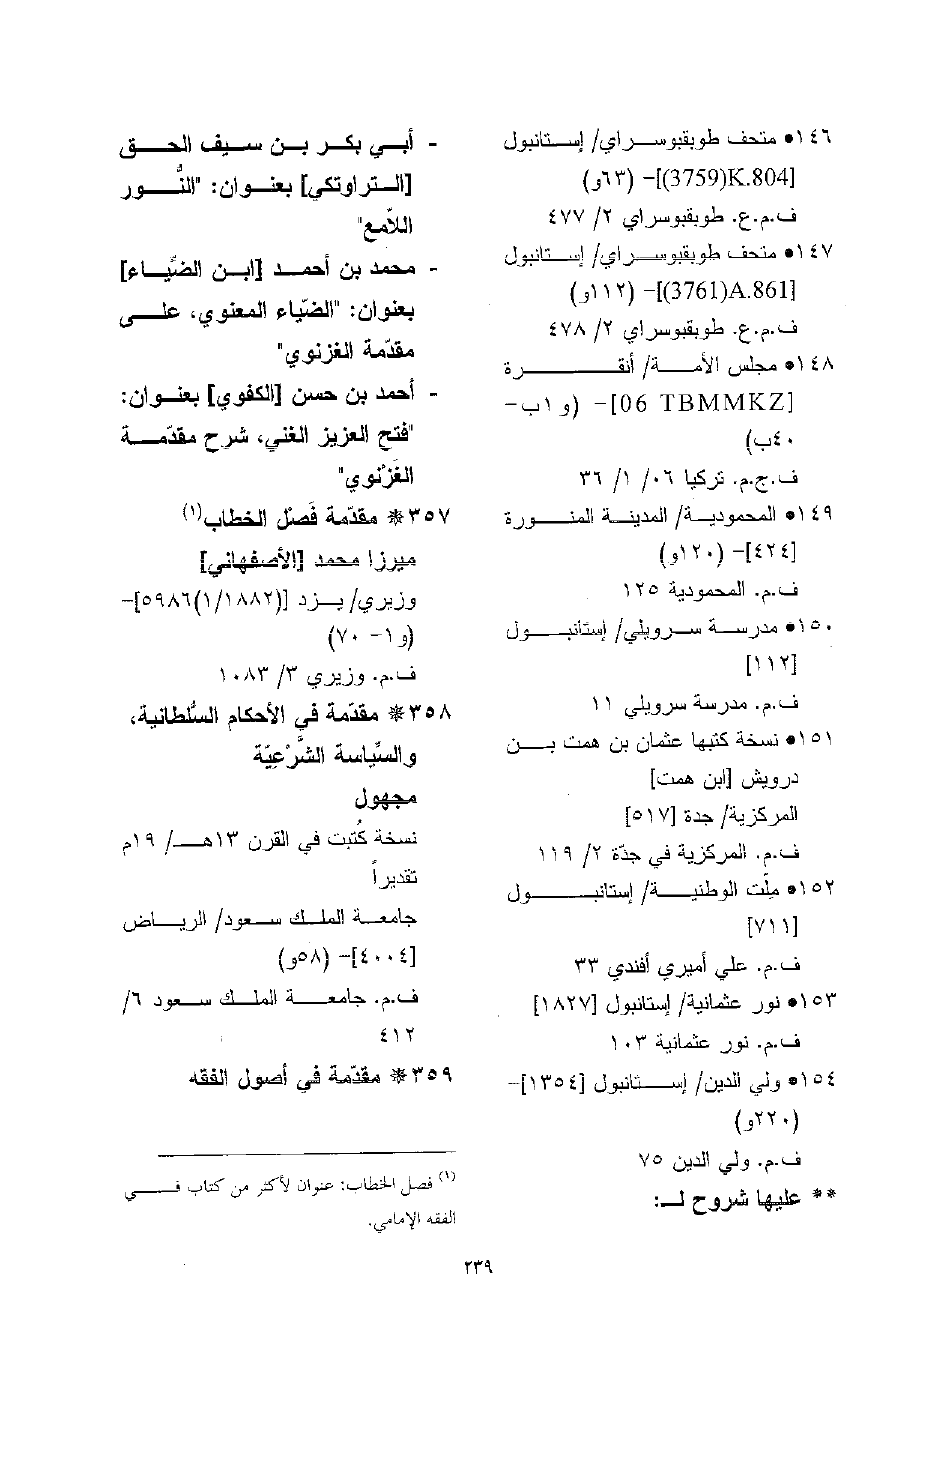 ١٤٦• متحف طوبقبوسراي/ إستانبول
[K.804(3759)]- (٦٣و)
ف.م.ع. طوبقبوسراي ٢/ ٤٧٧
١٤٧• متحف طوبقبوسراي/ إستانبول
[A.861(3761)]- (١١٢و)
ف.م.ع. طوبقبوسراي ٢/ ٤٧٨
١٤٨• مجلس الأمة/ أنقرة
[06 TBMMKZ]- (و١ب-
٤٠ب)
ف.ج.م. تركيا ٠٦/ ١/ ٣٦
١٤٩• المحمودية/ المدينة المنورة
[٤٢٤]- (١٢٠و)
ف.م. المحمودية ١٢٥
١٥٠• مدرسة سرويلي/ إستانبول
[١١٢]
ف.م. مدرسة سرويلي ١١
١٥١• نسخة كتبها عثمان بن همت بن
درويش [ابن همت]
المركزية/ جدة [٥١٧]
ف.م. المركزية في جدّة ٢/ ١١٩
١٥٢• ملّت الوطنية/ إستانبول
[٧١١]
ف.م. علي أميري أفندي ٣٣
١٥٣• نور عثمانية/ إستانبول [١٨٢٧]
ف.م. نور عثمانية ١٠٣
١٥٤• ولي الدين/ إستانبول [١٣٥٤]-
(٢٢٠و)
ف.م. ولي الدين ٧٥
** عليها شروح لـ:
- أبي بكر بن سيف الحق
[التراوتكي] بعنوان: "النُّور
اللاّمع"
- محمد بن أحمد [ابن الضّياء]
بعنوان: "الضّياء المعنوي، على
مقدّمة الغزنوي"
- أحمد بن حسن [الكفوي] بعنوان:
"فتح العزيز الغني، شرح مقدّمة
الغَزْنوي"
٣٥٧* مقدّمة فَصْل الخطاب(١)
ميرزا محمد [الأصفهاني]
وزيري/ يزد [(١/١٨٨٢)٥٩٨٦]-
(و١- ٧٠)
ف.م. وزيري ٣/ ١٠٨٣
٣٥٨* مقدّمة في الأحكام السُّلطانية،
والسِّياسة الشَّرْعِيَّة
مجهول
نسخة كُتبت في القرن ١٣هـ/ ١٩م
تقديراً
جامعة الملك سعود/ الرياض
[٤٠٠٤]- (٥٨و)
ف.م. جامعة الملك سعود ٦/
٤١٢
٣٥٩* مقدّمة في أصول الفقه
(١) فصل الخطاب: عنوان لأكثر من كتاب في
الفقه الإمامي.
٢٣٩